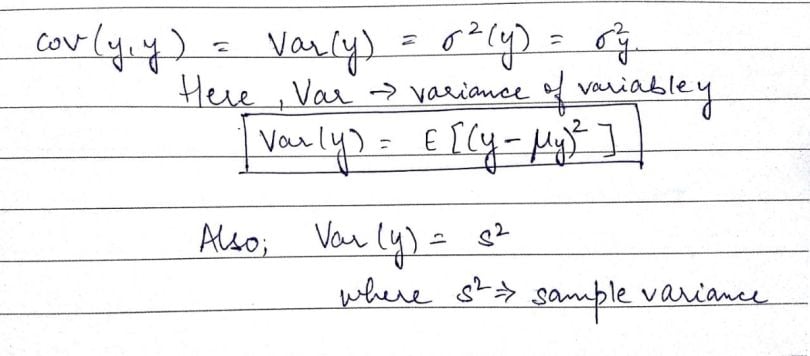 cov(y,y) = Var(y) = σ²(y) = σ²y.
Here, Var → variance of variable y
Var(y) = E[(y - μy)²]
Also; Var(y) = s²
where s² ⇒ sample variance